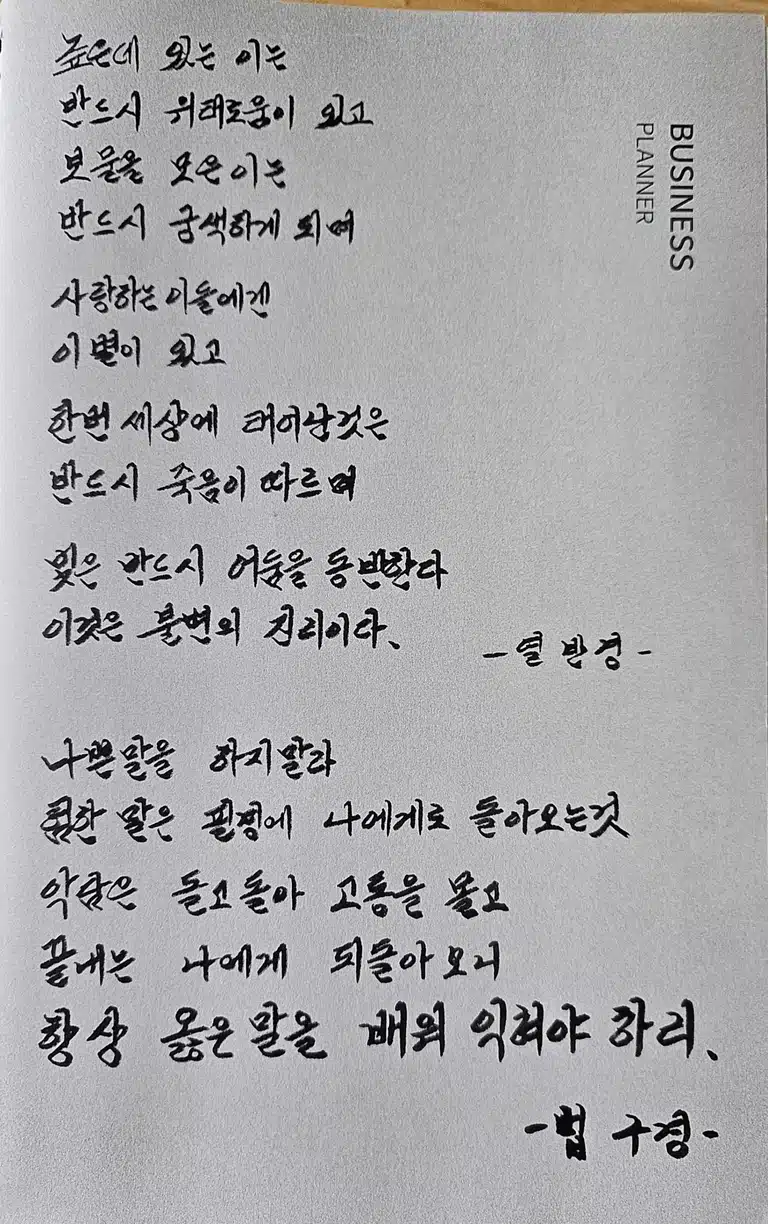 높은데 있는 이는
반드시 위태로움이 있고
보물을 모은 이는
반드시 궁색하게 되며
사랑하는 이들에겐
이별이 있고
한번 세상에 태어난것은
반드시 죽음이 따르며
빛은 반드시 어둠을 동반한다
이것은 불변의 진리이다.
-열반경-
나쁜말을 하지말라
험한 말은 필경에 나에게로 돌아오는것
악담은 돌고돌아 고통을 몰고
끝내는 나에게 되돌아 오니
항상 옳은 말을 배워 익혀야 하리.
-법구경-
BUSINESS
PLANNER